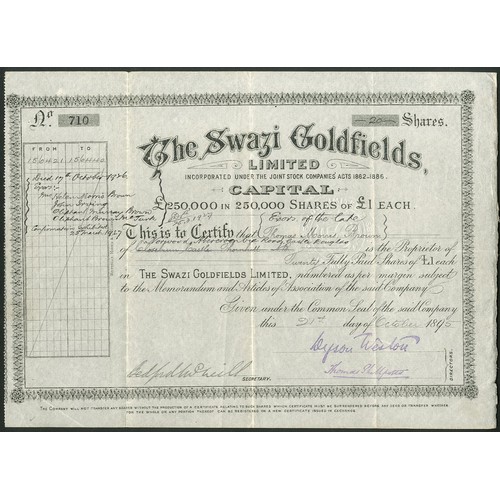 No 710
20 Shares.
The Swazi Goldfields,
LIMITED
INCORPORATED UNDER THE JOINT STOCK COMPANIES ACTS 1862-1886.
CAPITAL
£250,000 IN 250,000 SHARES OF £1 EACH.
FROM TO
Died 17th October 1926
Helen Morris Brown
John
Brown
Confirmation Exhibited
March 1927
Exors. of the late
This is to Certify that Thomas Morris Brown
is the Proprietor of
Twenty Fully Paid Shares of £1 each
in THE SWAZI GOLDFIELDS LIMITED, numbered as per margin subject
to the Memorandum and Articles of Association of the said Company
Given under the Common Seal of the said Company
this day of October 1895
SECRETARY.
DIRECTORS.
THE COMPANY WILL NOT TRANSFER ANY SHARES WITHOUT THE PRODUCTION OF A CERTIFICATE RELATING TO SUCH SHARES WHICH CERTIFICATE MUST BE SURRENDERED BEFORE ANY DEED OR TRANSFER WHETHER
FOR THE WHOLE OR ANY PORTION THEREOF CAN BE REGISTERED OR A NEW CERTIFICATE ISSUED IN EXCHANGE.